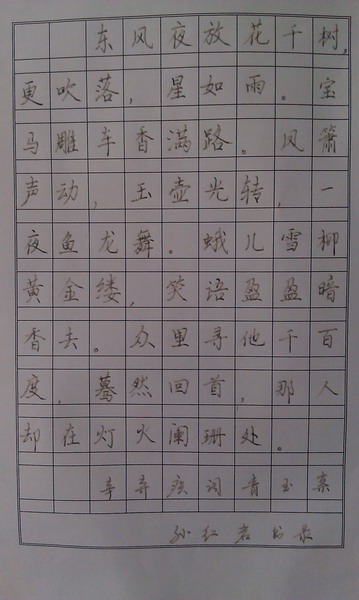 东风夜放花千树，
更吹落，星如雨。宝
马雕车香满路。凤箫
声动，玉壶光转，一
夜鱼龙舞。蛾儿雪柳
黄金缕，笑语盈盈暗
香去。众里寻他千百
度，蓦然回首，那人
却在灯火阑珊处。
辛弃疾词青玉案
孙红岩书录